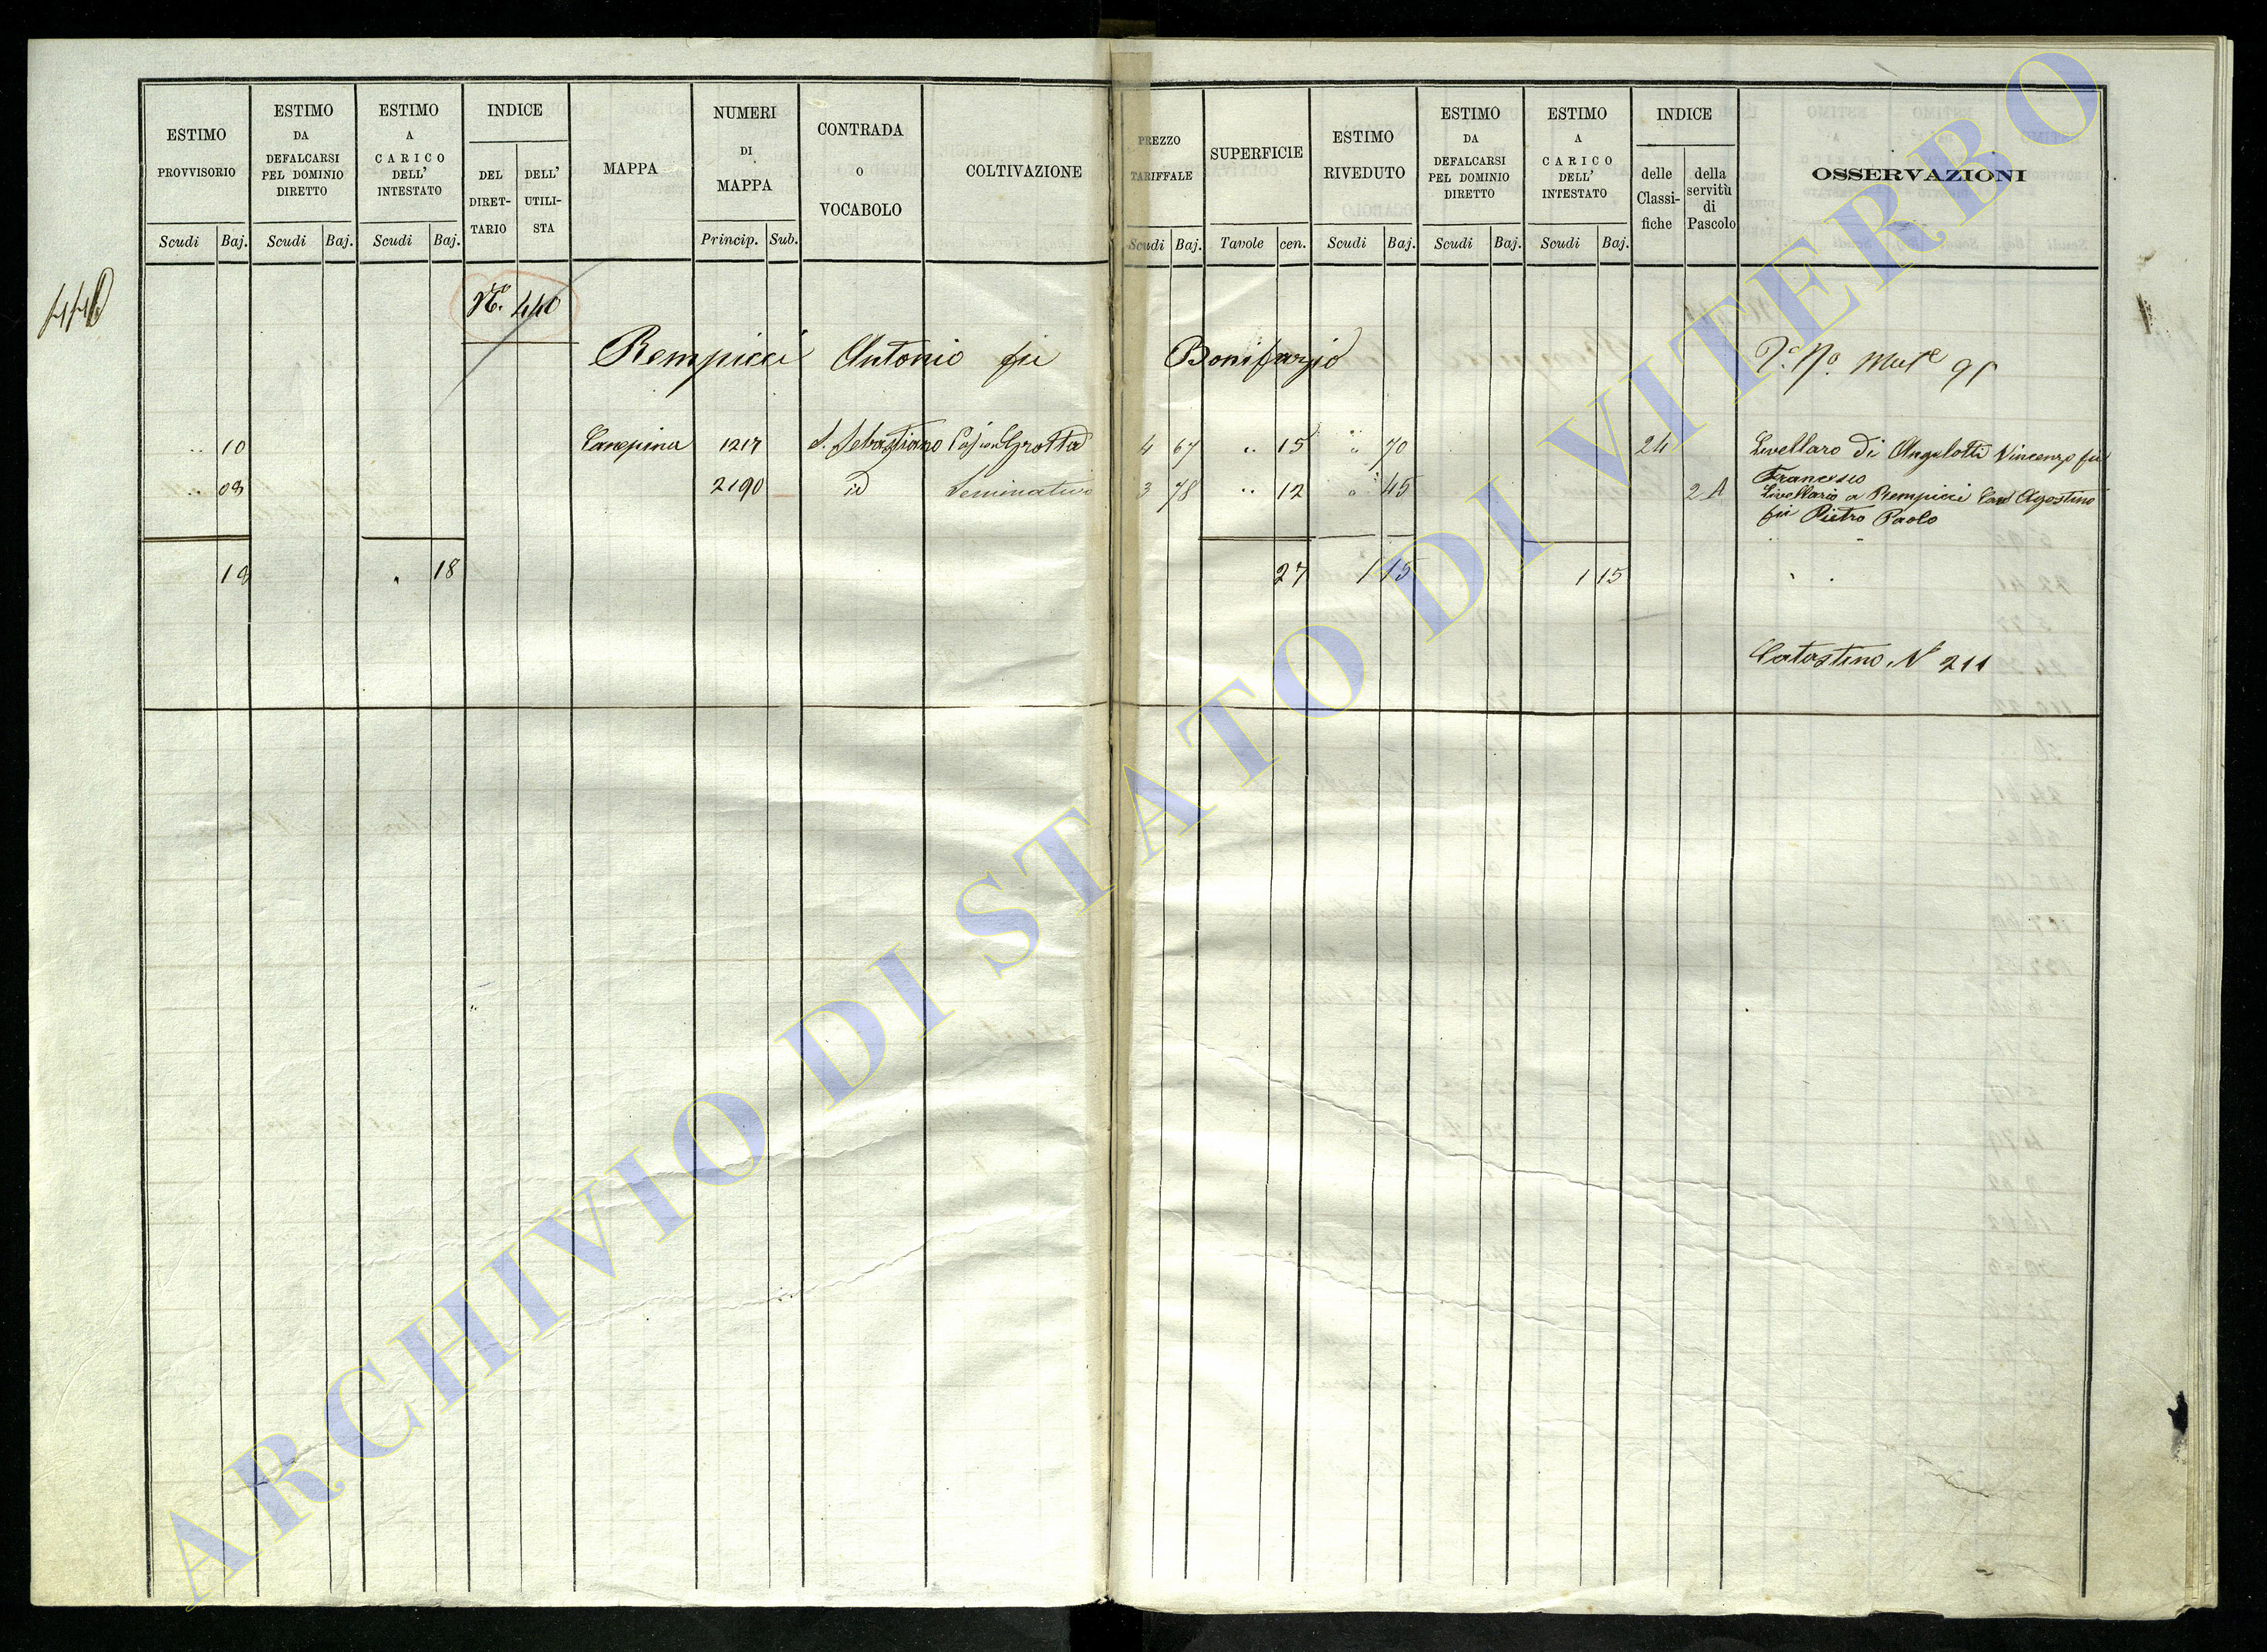 ESTIMO PROVVISORIO
ESTIMO DA DEFALCARSI PEL DOMINIO DIRETTO
ESTIMO A CARICO DELL' INTESTATO
INDICE
DEL DIRETTARIO
DELL' UTILISTA
MAPPA
NUMERI DI MAPPA
CONTRADA O VOCABOLO
COLTIVAZIONE
PREZZO TARIFFALE
SUPERFICIE
ESTIMO RIVEDUTO
ESTIMO DA DEFALCARSI PEL DOMINIO DIRETTO
ESTIMO A CARICO DELL' INTESTATO
INDICE
delle Classifiche
della servitù di Pascolo
OSSERVAZIONI
Scudi Baj. Scudi Baj. Scudi Baj. Princip. Sub. Scudi Baj. Tavole cen. Scudi Baj. Scudi Baj. Scudi Baj.
440
N.º 440
Rempicci Antonio fu Bonifazio
10 Canepina 1217 S. Sebastiano Grotta 4 67 " 15 " 70 24 Livellaro di Angelotti Vincenzo fu
Francesco
08 2190 id Seminativo 3 78 " 12 " 45 2 A Livellario a Rempicci Agostino
fu Pietro Paolo
18 " 18 27 1 15 1 15
Catastino N.º 211
ARCHIVIO DI STATO DI VITERBO